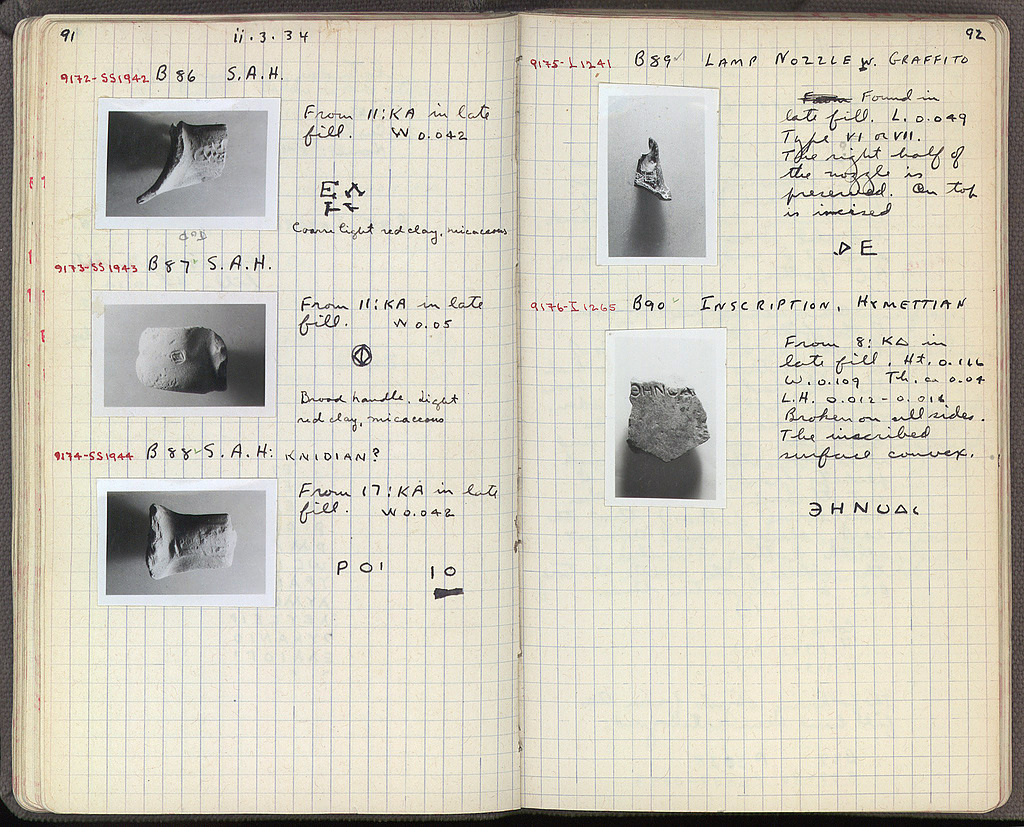 91
ii.3.34
9172-SS1942 B86 S.A.H.
From 11:KA in late
fill. W 0.042
Coarse light red clay, micaceous
9173-SS1943 B87 S.A.H.
From 11:KA in late
fill. W 0.05
Broad handle. Light
red clay, micaceous
9174-SS1944 B88 S.A.H: KNIDIAN?
From 17:KA in late
fill. W 0.042
92
9175-L1241 B89 LAMP NOZZLE W. GRAFFITO
Found in
late fill. L. 0.049
Type VI or VII.
The right half of
the nozzle is
preserved. On top
is incised
9176-I1265 B90 INSCRIPTION, HYMETTIAN
From 8:KΔ in
late fill. Ht. 0.116
W. 0.109 Th. ca 0.04
L.H. 0.012-0.016
Broken on all sides.
The inscribed
surface convex.